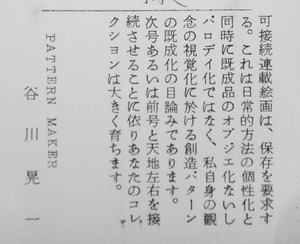 可接続連載絵画は、保存を要求す
る。これは日常的方法の個性化と
同時に既成品のオブジェ化ないし
パロデイ化ではなく、私自身の観
念の視覚化に於ける創造パターン
の既成化の目論みであります。
次号あるいは前号と天地左右を接
続させることに依りあなたのコレ
クションは大きく育ちます。
PATTERN MAKER
谷川晃一